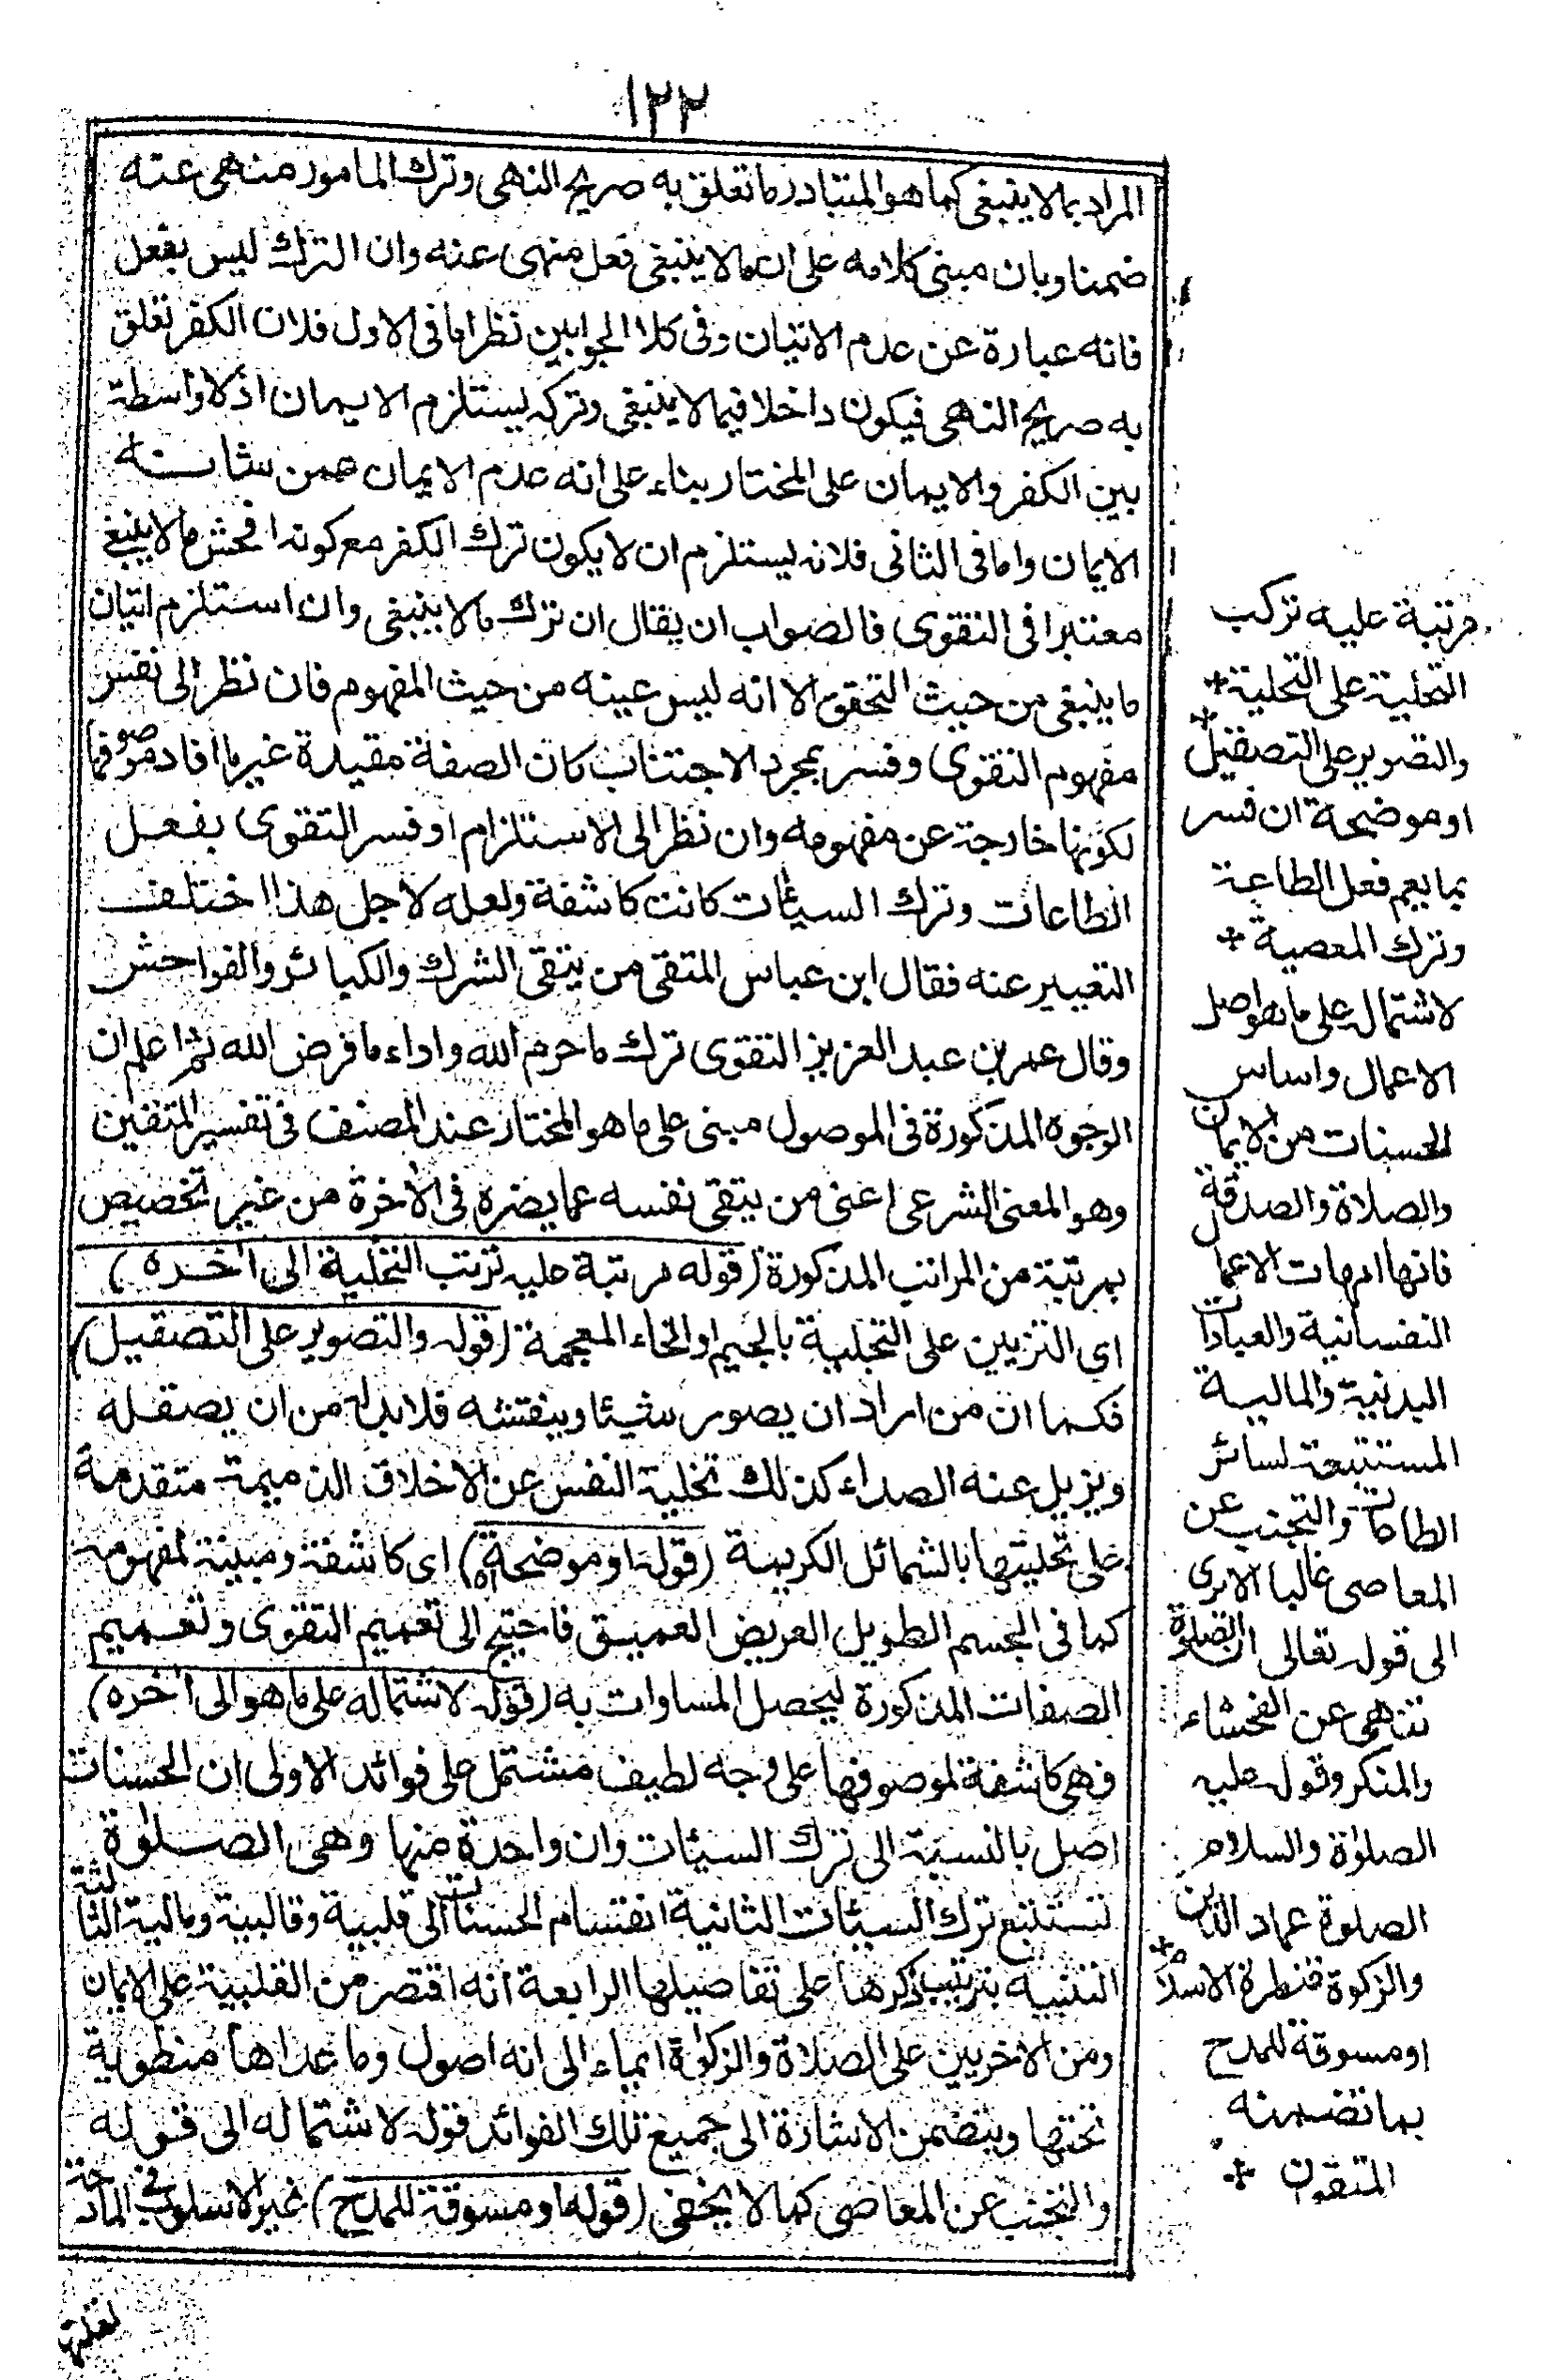 ١٢٢
المراد بما لا ينبغى كما هو المتبادر ما تعلق به صريح النهى وترك المامور منهى عنه
ضمنا وبان مبنى كلامه على ان ما لا ينبغى فعل منهى عنه وان الترك ليس بفعل
فانه عبارة عن عدم الاتيان وفى كلا الجوابين نظر اما فى الاول فلان الكفر تعلق
به صريح النهى فيكون داخلا فيما لا ينبغى وتركه يستلزم الايمان اذ لا واسطة
بين الكفر والايمان على المختار بناء على انه عدم الايمان عمن شانه
الايمان واما فى الثانى فلانه يستلزم ان لا يكون ترك الكفر مع كونه افحش ما لا ينبغى
معتبرا فى التقوى فالصواب ان يقال ان ترك ما لا ينبغى وان استلزم اتيان
ما ينبغى من حيث التحقق الا انه ليس عينه من حيث المفهوم فان نظر الى نفس
مفهوم التقوى وفسر بمجرد الاجتناب كان الصفة مقيدة غير ما افاد موصوفها
لكونها خارجة عن مفهومه وان نظر الى الاستلزام او فسر التقوى بفعل
الطاعات وترك السيئات كانت كاشفة ولعله لاجل هذا اختلف
التعبير عنه فقال ابن عباس المتقى من يتقى الشرك والكبائر والفواحش
وقال عمر بن عبد العزيز التقوى ترك ما حرم الله واداء ما فرض الله ثم اعلم ان
الوجوه المذكورة فى الموصول مبنى على ما هو المختار عند المصنف فى تفسير المتقين
وهو المعنى الشرعى اعنى من يتقى نفسه عما يضره فى الأخرة من غير تخصيص
بمرتبة من المراتب المذكورة (قوله مرتبة عليه ترتب التحلية الى أخره)
اى التزيين على التجلية بالجيم او الخاء المعجمة (قوله والتصوير على التصقيل)
فكما ان من اراد ان يصور شيئا وينقشه فلابد له من ان يصقله
ويزيل عنه الصداء كذلك تخلية النفس عن الاخلاق الذميمة متقدمة
على تحليتها بالشمائل الكريمة (قوله او موضحة اه) اى كاشفة ومبينة لمفهومه
كما فى الجسم الطويل العريض العميق فاحتيج الى تعميم التقوى وتعميم
الصفات المذكورة ليحصل المساوات به (قوله لاشتماله على ما هو الى أخره)
فهى كاشفة لموصوفها على وجه لطيف مشتمل على فوائد الاولى ان الحسنات
اصل بالنسبة الى ترك السيئات وان واحدة منها وهى الصلوة
تستتبع ترك السيئات الثانية انقسام الحسنات الى قلبية وقالبية ومالية الثالثة
التنبيه بترتيب ذكرها على تفاصيلها الرابعة انه اقتصر من القلبية على الايمان
ومن الاخريين على الصلاة والزكوة ايماء الى انه اصول وما عداها منطوية
تحتها ويتضمن الاشارة الى جميع تلك الفوائد قوله لاشتماله الى قوله
والتجنب عن المعاصى كما لا يخفى (قوله او مسوقة للمدح) غير الاسلوب فى المادحة
مرتبة عليه ترتب
التحلية على التخلية
والتصوير على التصقيل
او موضحة ان فسر
بما يعم فعل الطاعة
وترك المعصية
لاشتماله على ما هو اصل
الاعمال واساس
الحسنات من الايمان
والصلاة والصدقة
فانها امهات الاعمال
النفسانية والعبادات
البدنية والمالية
المستتبعة لسائر
الطاعات والتجنب عن
المعاصى غالبا الا ترى
الى قوله تعالى ان الصلوة
تنهى عن الفحشاء
والمنكر وقوله عليه
الصلوة والسلام
الصلوة عماد الدين
والزكوة قنطرة الاسلام
او مسوقة للمدح
بما تضمنه
المتقون